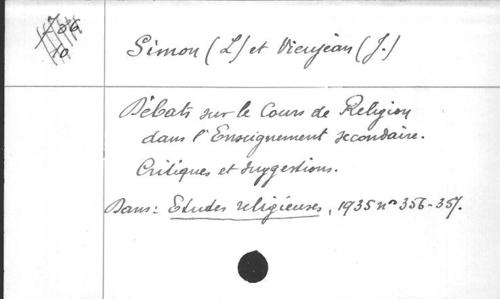 706
10
Simon (L) et Vieujean (J.)
Débats sur le Cours de Religion
dans l'Enseignement secondaire.
Critiques et suggestions.
Dans : Etudes religieuses, 1935 nos 356-357.